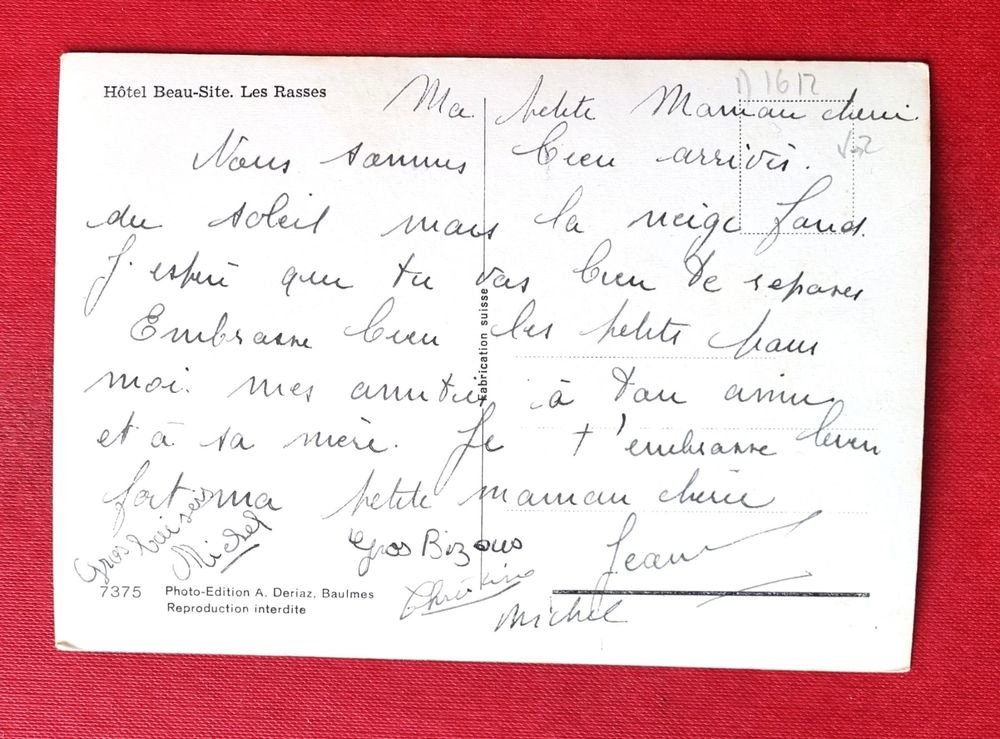 Hôtel Beau-Site. Les Rasses
Ma petite Maman cherie
Nous sommes bien arrivés.
du soleil mais la neige fond.
J'espère que tu vas bien te reposer
Embrasse bien les petits pour
moi. mes amitiés à ton amie
et à sa mère. Je t'embrasse bien
fort ma petite maman chérie
Jean
Gros baisers
Michel
Gros Bizous
Christine
Michel
7375 Photo-Edition A. Deriaz, Baulmes
Reproduction interdite
Fabrication suisse
1612